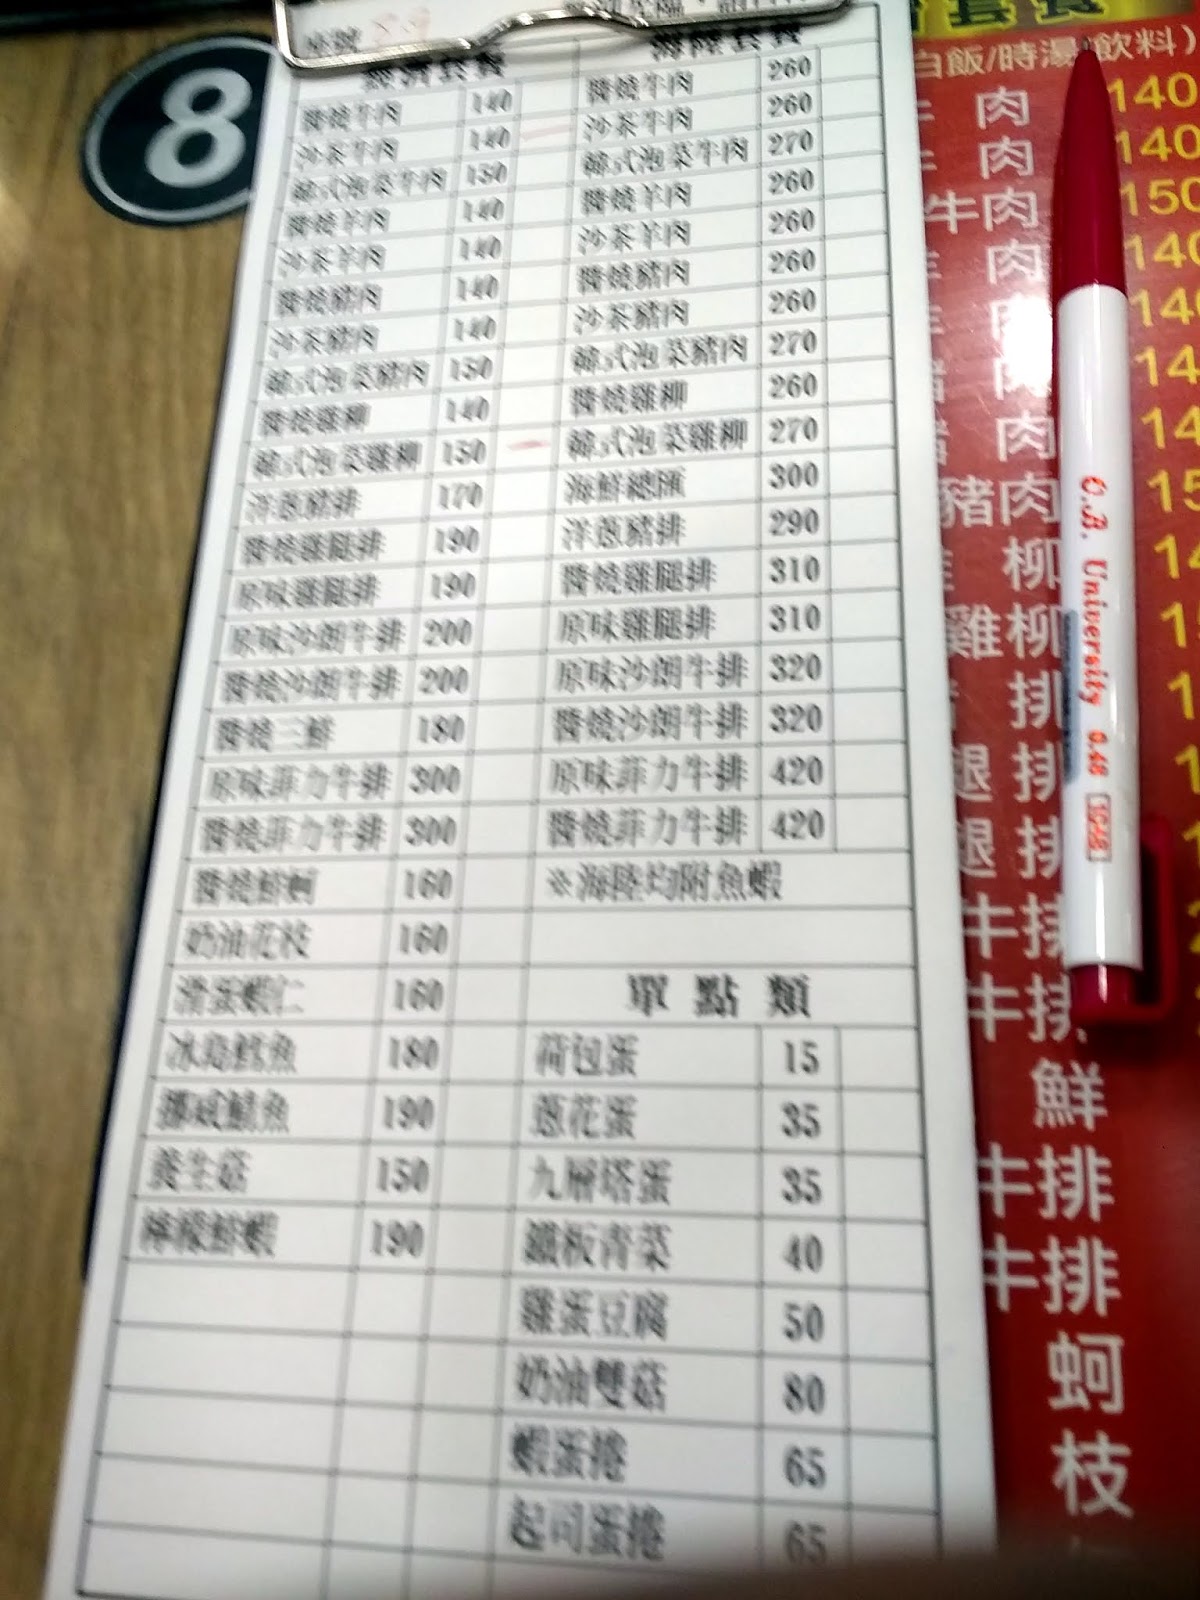 8
座號
經濟套餐
醬燒牛肉 140
沙茶牛肉 140
韓式泡菜牛肉 150
醬燒羊肉 140
沙茶羊肉 140
醬燒豬肉 140
沙茶豬肉 140
韓式泡菜豬肉 150
醬燒雞柳 140
韓式泡菜雞柳 150
洋蔥豬排 170
醬燒雞腿排 190
原味雞腿排 190
原味沙朗牛排 200
醬燒沙朗牛排 200
醬燒三鮮 180
原味菲力牛排 300
醬燒菲力牛排 300
醬燒鮮蚵 160
奶油花枝 160
滑蛋蝦仁 160
冰島鱈魚 180
挪威鯖魚 190
養生菇 150
檸檬鮮蝦 190
海陸套餐
醬燒牛肉 260
沙茶牛肉 260
韓式泡菜牛肉 270
醬燒羊肉 260
沙茶羊肉 260
醬燒豬肉 260
沙茶豬肉 260
韓式泡菜豬肉 270
醬燒雞柳 260
韓式泡菜雞柳 270
海鮮總匯 300
洋蔥豬排 290
醬燒雞腿排 310
原味雞腿排 310
原味沙朗牛排 320
醬燒沙朗牛排 320
原味菲力牛排 420
醬燒菲力牛排 420
※海陸均附魚蝦
單點類
荷包蛋 15
蔥花蛋 35
九層塔蛋 35
鐵板青菜 40
雞蛋豆腐 50
奶油雙菇 80
蝦蛋捲 65
起司蛋捲 65
套餐
白飯/時湯/飲料)
肉 140
肉 140
牛肉 150
肉 140
肉
肉
肉
豬肉
柳
雞柳
排
腿排
腿排
牛排
牛排
鮮
牛排
牛排
蚵
枝
O.B. University 0.48